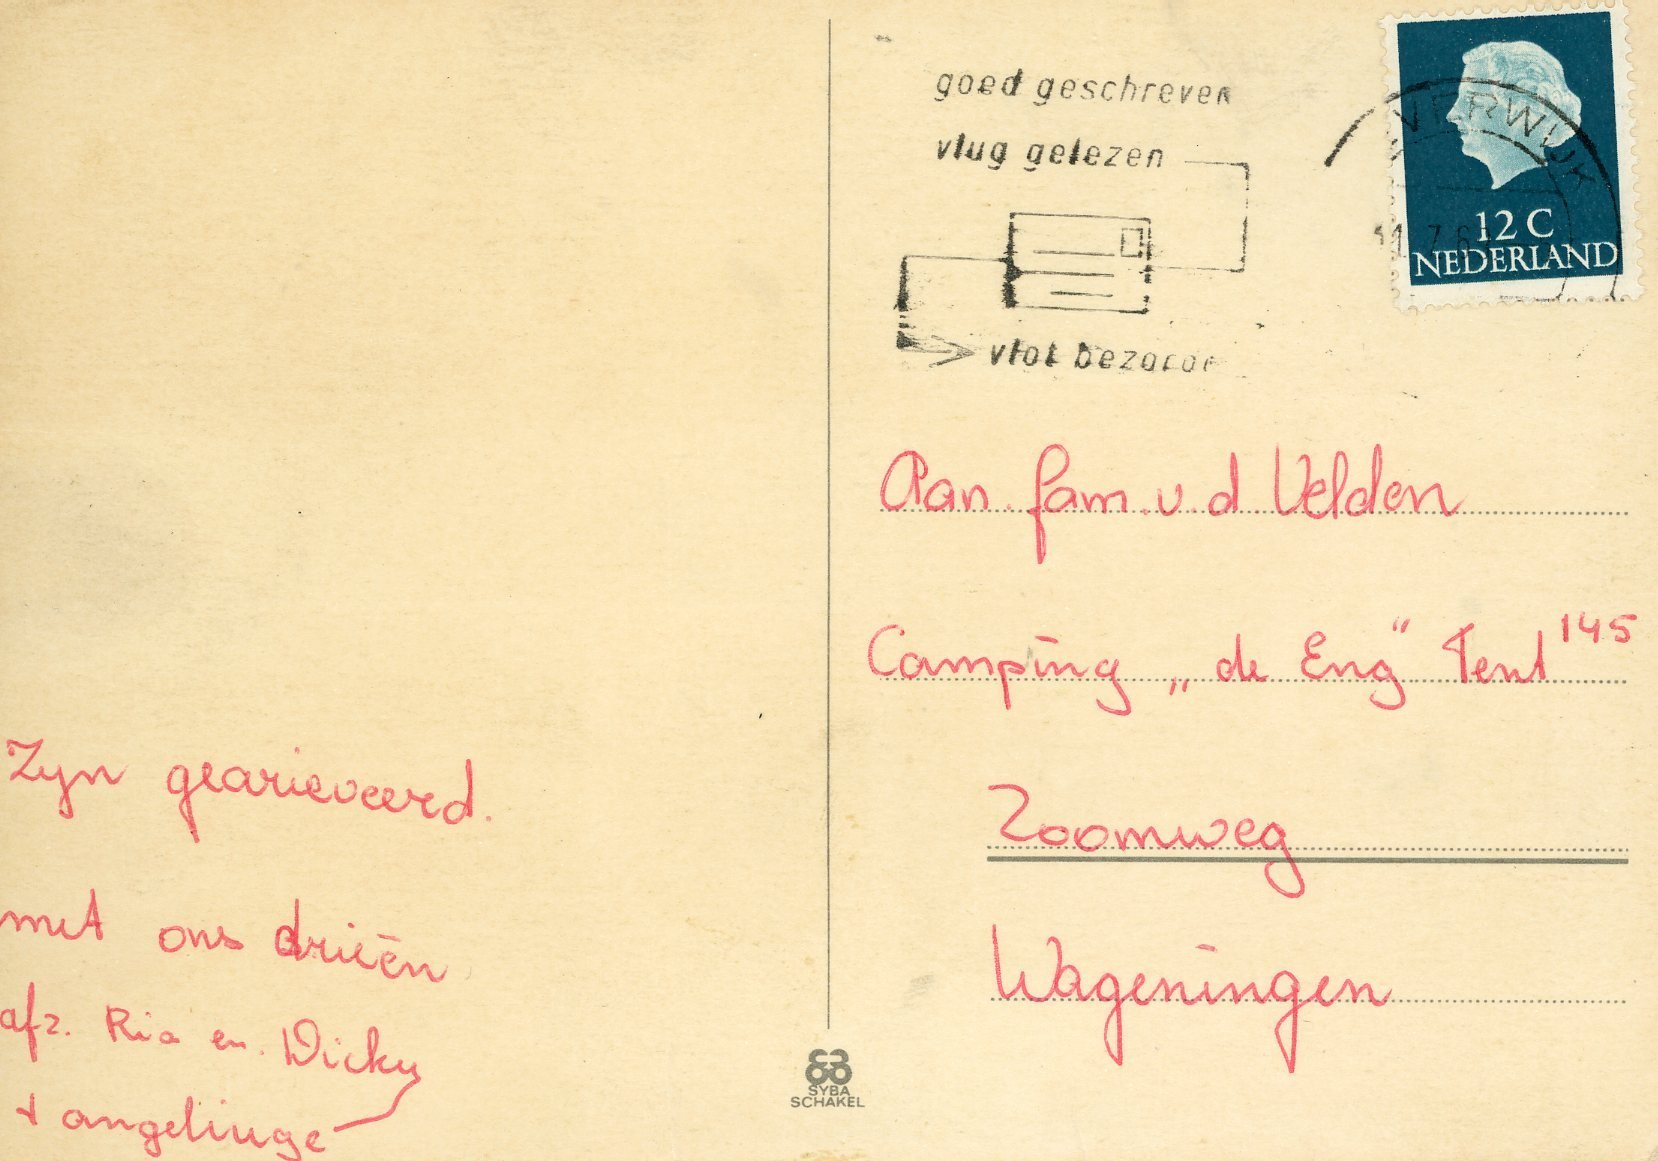 Zyn gearieveerd.
met ons drieën
afz. Ria en. Dicky
+ angelinge
goed geschreven
vlug gelezen
vlot bezorgd
VERWIJK
12 C
NEDERLAND
Aan. fam. v. d. Velden
Camping „de Eng" Tent 145
Zoomweg
Wageningen
SYBA
SCHAKEL